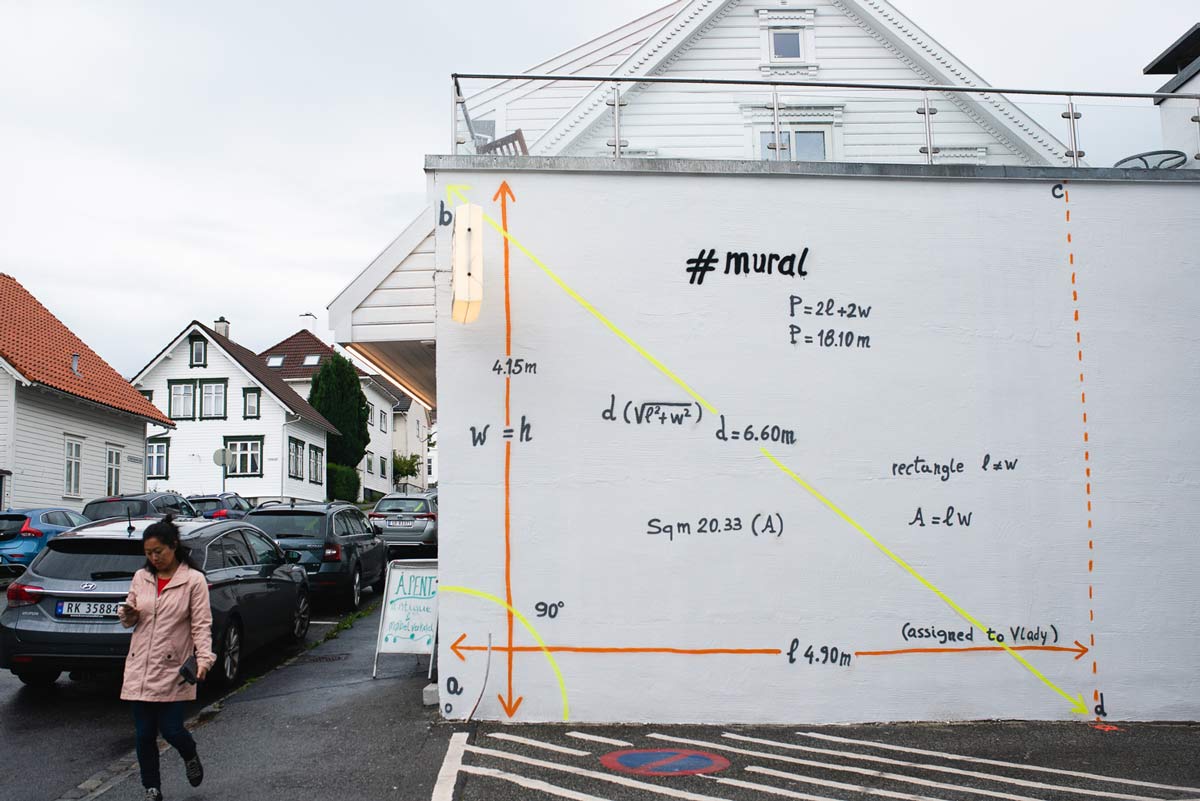 b
c
#mural
P=2l+2w
P=18.10m
4.15m
d (√l²+w²)
w = h
d=6.60m
rectangle l≠w
Sqm 20.33 (A)
A=lw
90°
(assigned to Vlady)
l 4.90m
a
d
ÅPENT
Antique
&
RK 35884